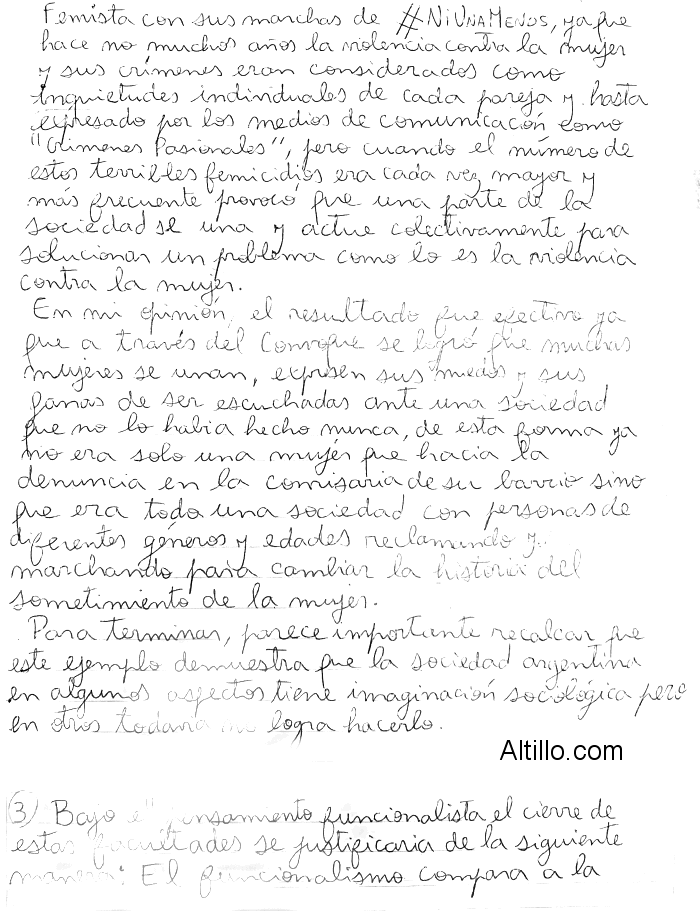 Femista con sus marchas de #NIUNAMENOS, ya que
hace no muchos años la violencia contra la mujer
y sus crímenes eran considerados como
inquietudes individuales de cada pareja y hasta
expresado por los medios de comunicación como
"Crímenes Pasionales", pero cuando el número de
estos terribles femicidios era cada vez mayor y
más frecuente provocó que una parte de la
sociedad se una y actue colectivamente para
solucionar un problema como lo es la violencia
contra la mujer.
En mi opinión, el resultado fue efectivo ya
que a través del Conoque se logró que muchas
mujeres se unan, expresen sus miedos y sus
ganas de ser escuchadas ante una sociedad
que no lo había hecho nunca, de esta forma ya
no era solo una mujer que hacia la
denuncia en la comisaria de su barrio sino
que era toda una sociedad con personas de
diferentes géneros y edades reclamando y
marchando para cambiar la historia del
sometimiento de la mujer.
Para terminar, parece importante recalcar que
este ejemplo demuestra que la sociedad argentina
en algunos aspectos tiene imaginación sociológica pero
en otros todavía no logra hacerlo.
Altillo.com
3) Bajo el pensamiento funcionalista el cierre de
estas facultades se justificaria de la siguiente
manera: El funcionalismo compara a la